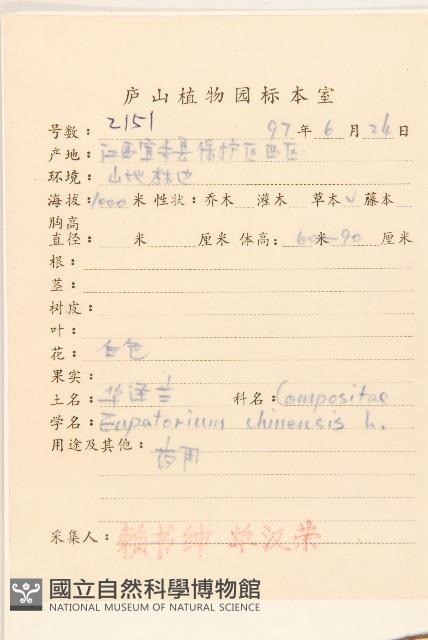 庐山植物园标本室
号数：2151 97年6月24日
产地：江西宜丰县保护区西区
环境：山地林边
海拔：1000米 性状：乔木 灌木 草本√ 藤本
胸高
直径： 米 厘米 体高：60米—90厘米
根：
茎：
树皮：
叶：
花：白色
果实：
土名：华泽兰 科名：Compositae
学名：Eupatorium chinensis L.
用途及其他：药用
采集人：赖书绅 单汉荣
國立自然科學博物館
NATIONAL MUSEUM OF NATURAL SCIENCE